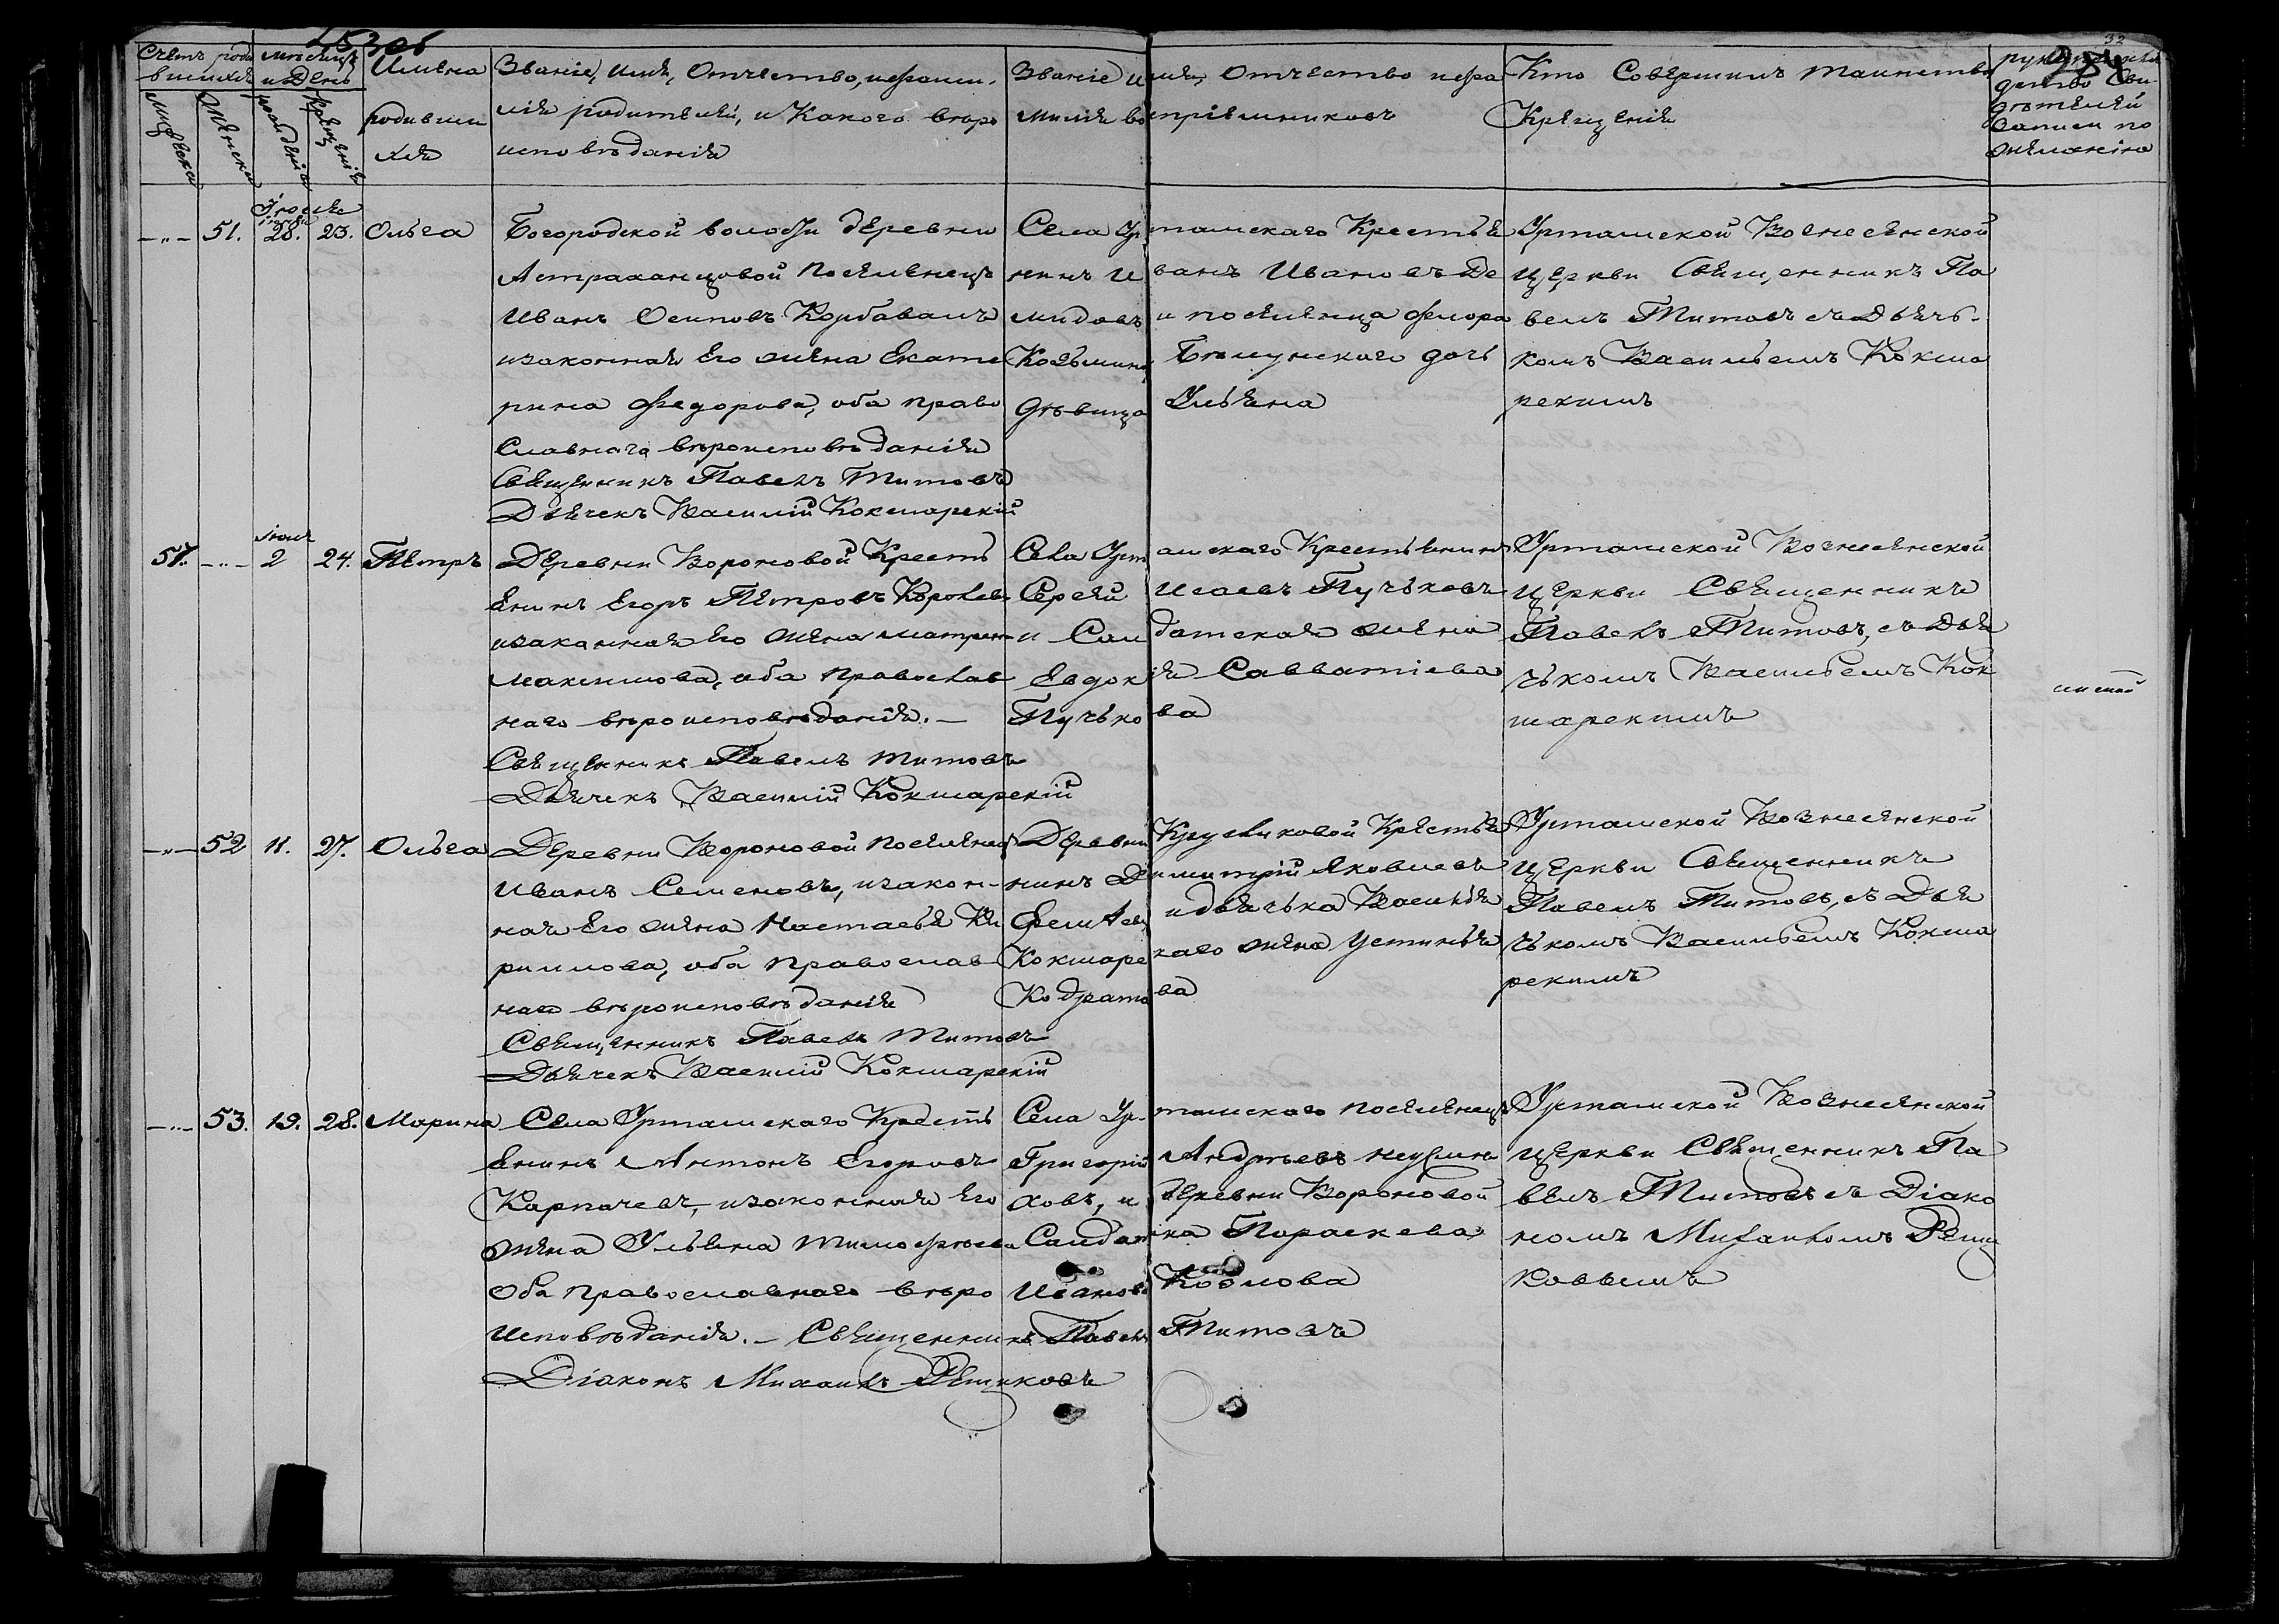 32
Счетъ роди
вшихся
Мужеска
Женска
Мѣсяцъ
и День
рожденія
крещенія
Имена
родивши
хся
Званіе, имя, Отчество, и фами-
лія родителей, и Какого вѣро
исповѣданія
Званіе имя, Отчество и фа
милія воспріемниковъ
Кто Совершилъ таинство
Крещенія
детво Сви
дѣтелей
Записи по
желанію
Іюля
51. 28. 23. Ольга
Богородской волости деревни
Астраханцовой поселенецъ
Иванъ Осиповъ
изаконная Его жена Екате
рина Федорова, оба право
Славнаго вѣроисповѣданія
Священникъ Павелъ Титовъ
Дьячекъ Василій Кокшарскій
Села Уртамскаго Крестья
нинъ Иванъ Ивановъ Де
мидовъ и поселенца
дочь
дѣвица Ульяна
Уртамской Вознесенской
церкви Священникъ Па
велъ Титовъ съ Дьячь-
комъ Васильемъ Кокша
рскимъ
Іюля
51. 2 24. Петръ
Деревни Вороновой Кресть
янинъ Егоръ Петровъ Королевъ
изаконная Его жена Матрена
Максимова, оба Православ
наго вѣроисповѣданія.
Священникъ Павелъ Титовъ
Дьячекъ Василій Кокшарскій
Села Уртамскаго Крестьянинъ
Сергѣй Исаевъ Пучьковъ
и Салдатская жена
Евдокія Савватіева
Пучькова
Уртамской Вознесенской
церкви Священникъ
Павелъ Титовъ, съ Дья
чькомъ Васильемъ Кок
шарскимъ
52 11. 27. Ольга
Деревни Вороновой поселенецъ
Иванъ Семеновъ, изакон-
ная Его жена Настасья Ки
рилова, оба Православ
наго вѣроисповѣданія
Священникъ Павелъ Титовъ
Дьячекъ Василій Кокшарскій
Деревни Кругликовой Крестья
нинъ Димитрій Яковлевъ
и дьячька Василья
Кокшарскаго жена Устинья
Кодратова
Уртамской Вознесенской
церкви Священникъ
Павелъ Титовъ, съ Дья
чькомъ Васильемъ Кокша
рскимъ
53. 19. 28. Марина
Села Уртамскаго Кресть
янинъ Антонъ Егоровъ
Карпачевъ, изаконная Его
жена Ульяна Тимофѣева
Оба Православнаго вѣро
Исповѣданія. – Священникъ Павелъ Титовъ
Діаконъ Михаилъ Рещиковъ
Села Уртамскаго поселенецъ
Григорій Андреевъ
и деревни Вороновой
Салдатка Параскева
Иванова Козлова
Уртамской Вознесенской
церкви Священникъ Па
велъ Титовъ съ Діако
номъ Михаиломъ Рещи
ковымъ